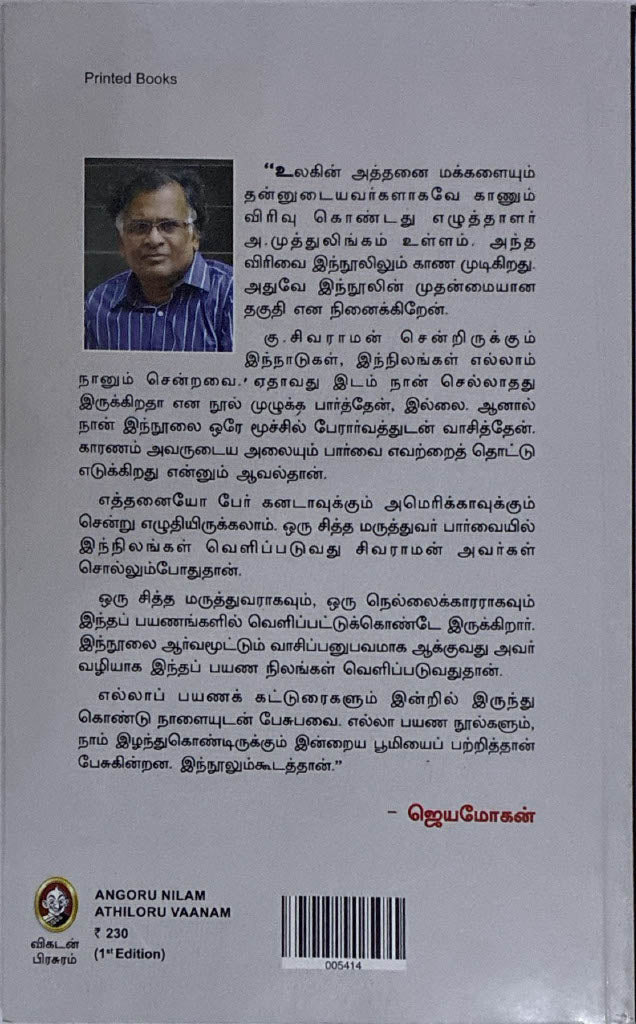 Printed Books
“உலகின் அத்தனை மக்களையும்
தன்னுடையவர்களாகவே காணும்
விரிவு கொண்டது எழுத்தாளர்
அ.முத்துலிங்கம் உள்ளம். அந்த
விரிவை இந்நூலிலும் காண முடிகிறது.
அதுவே இந்நூலின் முதன்மையான
தகுதி என நினைக்கிறேன்.
கு.சிவராமன் சென்றிருக்கும்
இந்நாடுகள், இந்நிலங்கள் எல்லாம்
நானும் சென்றவை.’ ஏதாவது இடம் நான் செல்லாதது
இருக்கிறதா என நூல் முழுக்க பார்த்தேன், இல்லை. ஆனால்
நான் இந்நூலை ஒரே மூச்சில் பேரார்வத்துடன் வாசித்தேன்.
காரணம் அவருடைய அலையும் பார்வை எவற்றைத் தொட்டு
எடுக்கிறது என்னும் ஆவல்தான்.
எத்தனையோ பேர் கனடாவுக்கும் அமெரிக்காவுக்கும்
சென்று எழுதியிருக்கலாம். ஒரு சித்த மருத்துவர் பார்வையில்
இந்நிலங்கள் வெளிப்படுவது சிவராமன் அவர்கள்
சொல்லும்போதுதான்.
ஒரு சித்த மருத்துவராகவும், ஒரு நெல்லைக்காரராகவும்
இந்தப் பயணங்களில் வெளிப்பட்டுக்கொண்டே இருக்கிறார்.
இந்நூலை ஆர்வமூட்டும் வாசிப்பனுபவமாக ஆக்குவது அவர்
வழியாக இந்தப் பயண நிலங்கள் வெளிப்படுவதுதான்.
எல்லாப் பயணக் கட்டுரைகளும் இன்றில் இருந்து
கொண்டு நாளையுடன் பேசுபவை. எல்லா பயண நூல்களும்,
நாம் இழந்துகொண்டிருக்கும் இன்றைய பூமியைப் பற்றித்தான்
பேசுகின்றன. இந்நூலும்கூடத்தான்.”
– ஜெயமோகன்
விகடன்
பிரசுரம்
ANGORU NILAM
ATHILORU VAANAM
₹ 230
(1st Edition)
005414